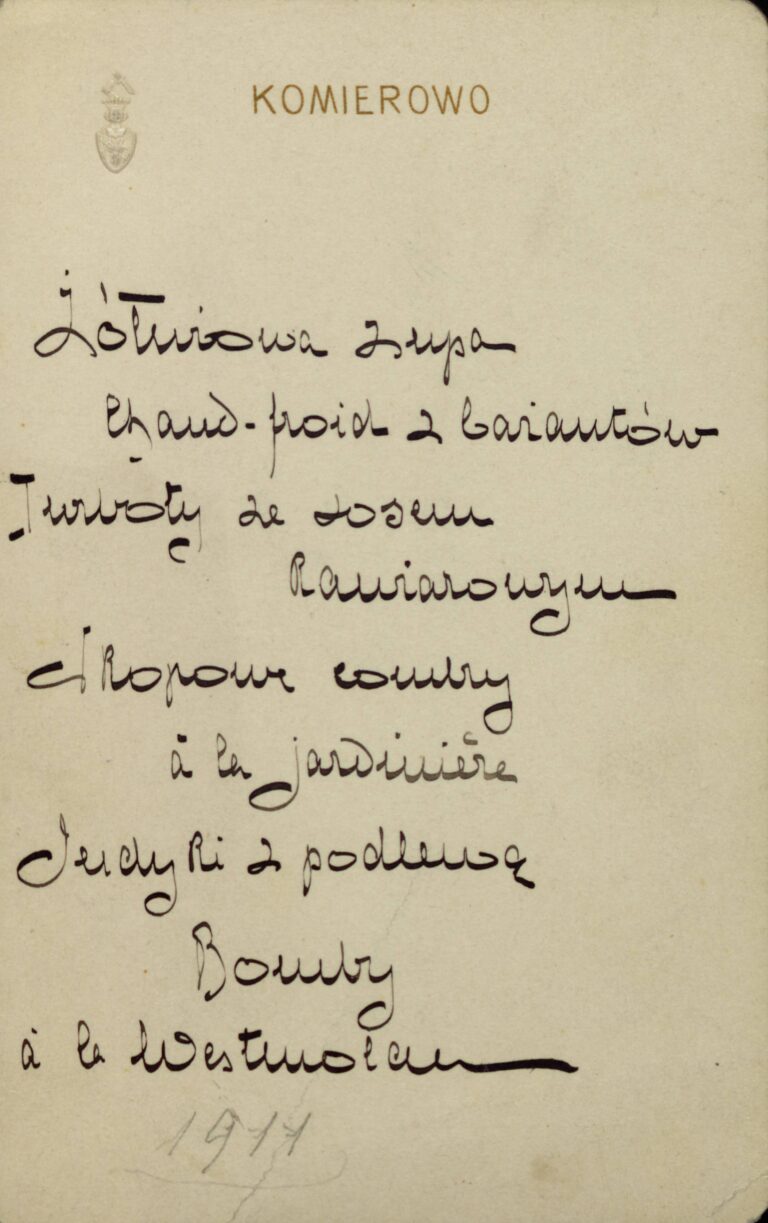 KOMIEROWO
Żółwiowa zupa
Chaud-froid z bażantów
Turboty ze sosem
Kawiarowym
Skopowe combry
à la jardinière
Indyki z podlewą
Bomby
à la
1911